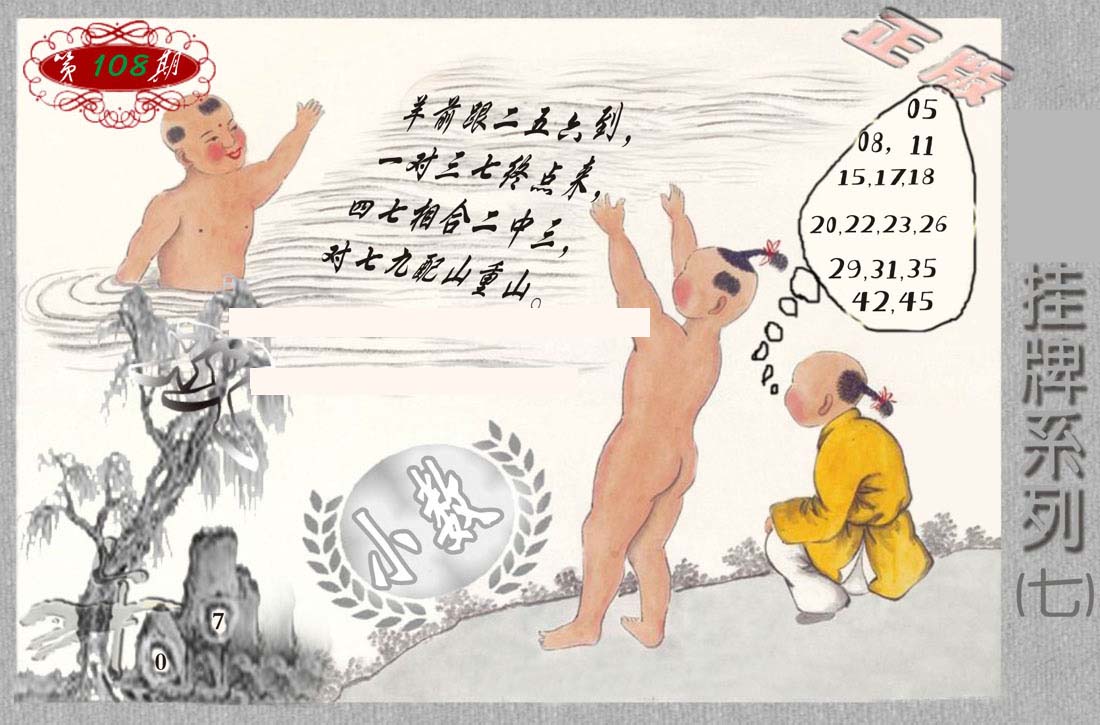 第108期
正版
羊前跟二五六到，
一对三七终点来，
四七相合二中三，
对七九配山重山。
05
08, 11
15,17,18
20,22,23,26
29,31,35
42,45
挂牌系列(七)
小数
7
0